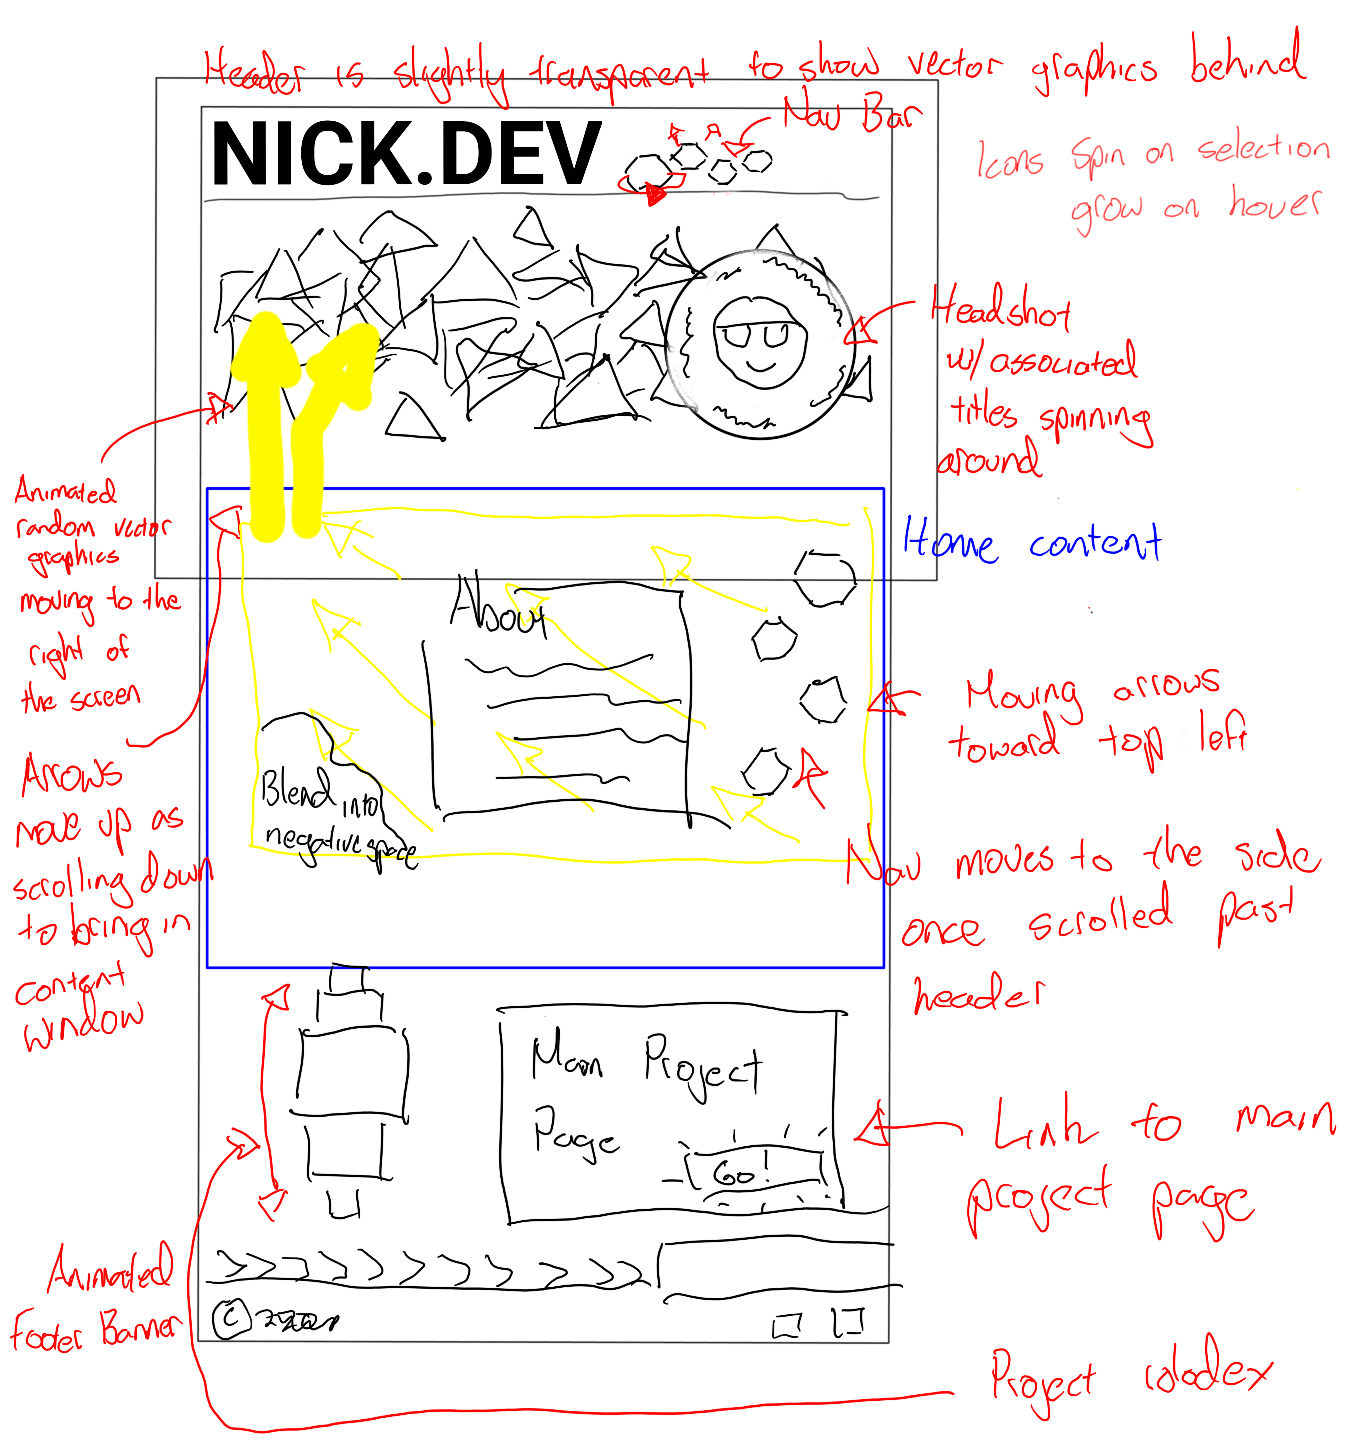 Header is slightly transparent to show vector graphics behind
NICK.DEV
Nav Bar
Icons spin on selection
grow on hover
Headshot
w/ associated
titles spinning
around
Animated
random vector
graphics
moving to the
right of
the screen
Home content
About
Moving arrows
toward top left
Arrows
move up as
scrolling down
to bring in
content
window
Blend into
negative space
Nav moves to the side
once scrolled past
header
Main Project
Page
Go!
Link to main
project page
Animated
Footer Banner
©
Project rolodex